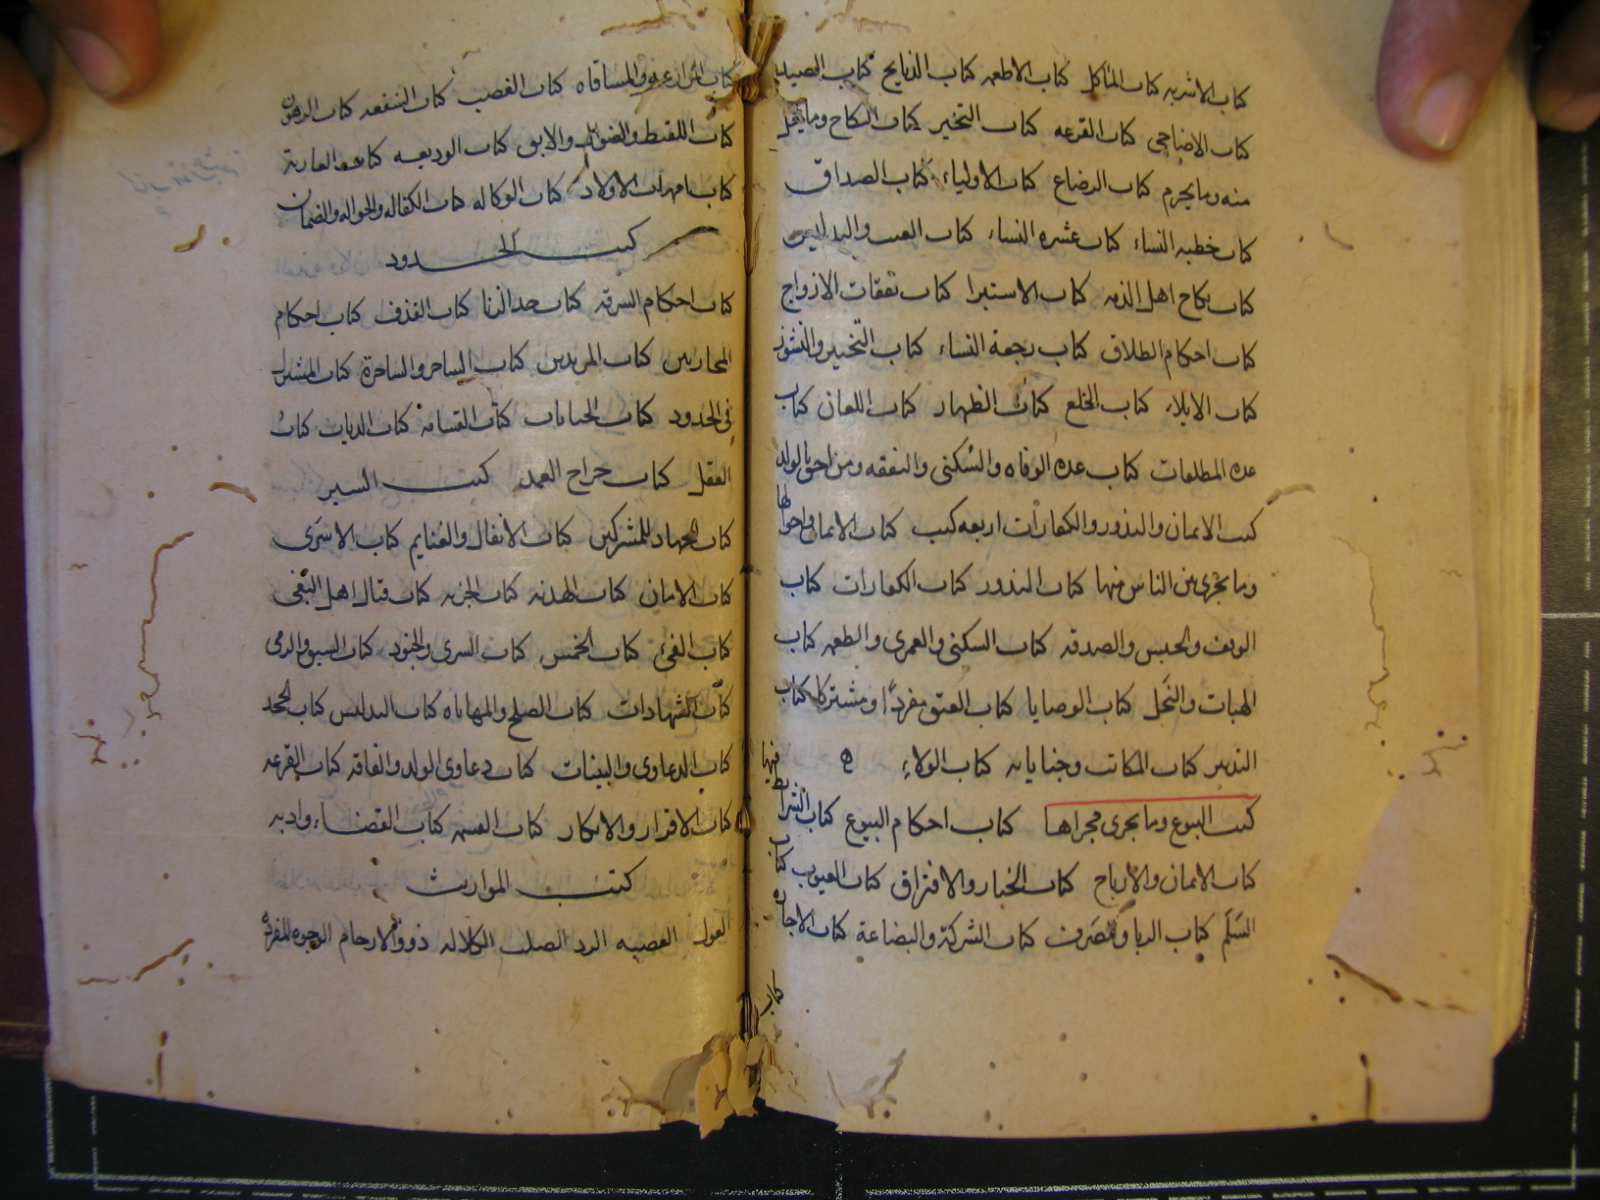 كتاب الاشربه كتاب المآكل كتاب الاطعمه كتاب الذبايح كتاب الصيد
كتاب الاضاحي كتاب القرعه كتاب التخيير كتاب النكاح وما يحل
منه وما يحرم كتاب الرضاع كتاب الاولياء كتاب الصداق
كتاب خطبه النساء كتاب عشره النساء كتاب العيب والتدليس
كتاب نكاح اهل الذمه كتاب الاستبرا كتاب نفقات الازواج
كتاب احكام الطلاق كتاب رجعة النساء كتاب التخيير والنشوز
كتاب الايلاء كتاب الخلع كتاب الظهار كتاب اللعان كتاب
عده المطلقات كتاب عده الوفاه والسكنى والنفقه ومن احق بالولد
كتب الايمان والنذور والكفارات اربعه كتب كتاب الايمان واحوالها
وما يجرى بين الناس منها كتاب النذور كتاب الكفارات كتاب
الوقف والحبس والصدقه كتاب السكنى والعمرى والطعمه كتاب
الهبات والنحل كتاب الوصايا كتاب العتق مفردًا ومشتركا كتاب
التدبير كتاب المكاتب وجناياته كتاب الولاءِ
كتب البيوع وما يجرى مجراها كتاب احكام البيوع كتاب الشرائط فيها
كتاب الاثمان والارباح كتاب الخيار والافتراق كتاب العيوب كتاب
السَلَم كتاب الربا والصَرف كتاب الشركة والبضاعة كتاب الاجاره
كتاب
كتاب المزارعه والمساقاه كتاب الغصب كتاب الشفعه كتاب الرهون
كتاب اللقيط والضوال والابق كتاب الوديعه كتاب العارية
كتاب امهات الاولاد كتاب الوكاله كتاب الكفاله والحواله والضمان
كتب الحدود
كتاب احكام السرقه كتاب حد الزنا كتاب القذف كتاب احكام
المحاربين كتاب المرتدين كتاب الساحر والساحرة كتاب المشترك
فى الحدود كتاب الجنايات كتاب القسامه كتاب الديات كتاب
العقل كتاب جراح العمد كتب السير
كتاب الجهاد للمشركين كتاب الانفال والغنايم كتاب الاسَرى
كتاب الامان كتاب الهدنه كتاب الجزيه كتاب قتال اهل البغى
كتاب الفئ كتاب الخمس كتاب السرى والجنود كتاب السبق والرمى
كتاب الشهادات كتاب الصلح والمهاياه كتاب التدليس كتاب الحجر
كتاب الدعاوى والبينات كتاب دعاوى الولد والقافه كتاب القرعه
كتاب الاقرار والانكار كتاب القسمه كتاب القضاء وادبه
كتب المواريث
العول العصبه الرد الصلب الكلاله ذوو الارحام الوجوه المفرده